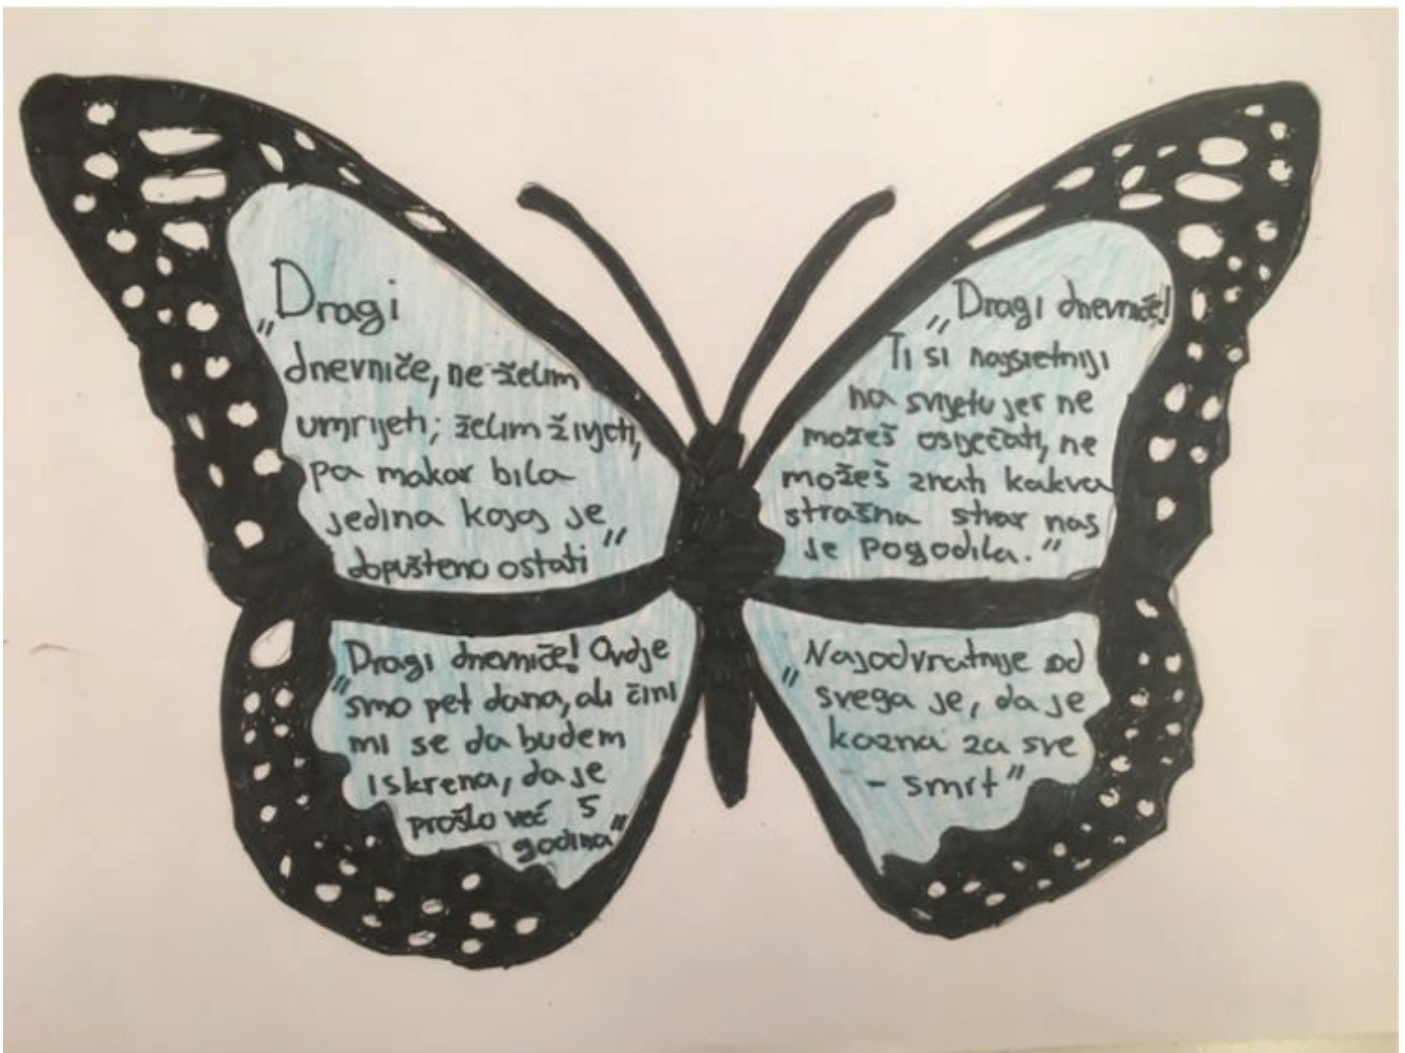 „Dragi
dnevniče, ne želim
umrijeti; želim živjeti,
pa makar bila
jedina kojoj je
dopušteno ostati"
„Dragi dnevniče!
Ti si najsretniji
na svijetu jer ne
možeš osjećati, ne
možeš znati kakva
strašna stvar nas
je pogodila."
„Dragi dnevniče! Ovdje
smo pet dana, ali čini
mi se da budem
iskrena, da je
prošlo već 5
godina"
„Najodvratnije od
svega je, da je
kazna za sve
- smrt"